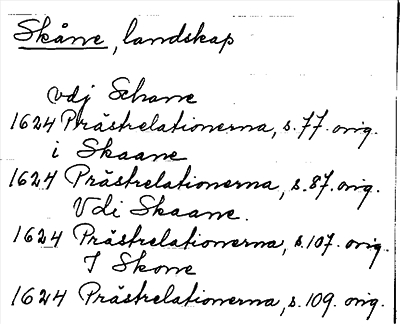 Skåne, landskap
vdj Schane
1624 Prästrelationerna, s. 77. orig.
i Skaane
1624 Prästrelationerna, s. 87. orig.
Vdi Skaane.
1624 Prästrelationerna, s. 107. orig.
I Skone
1624 Prästrelationerna, s. 109. orig.